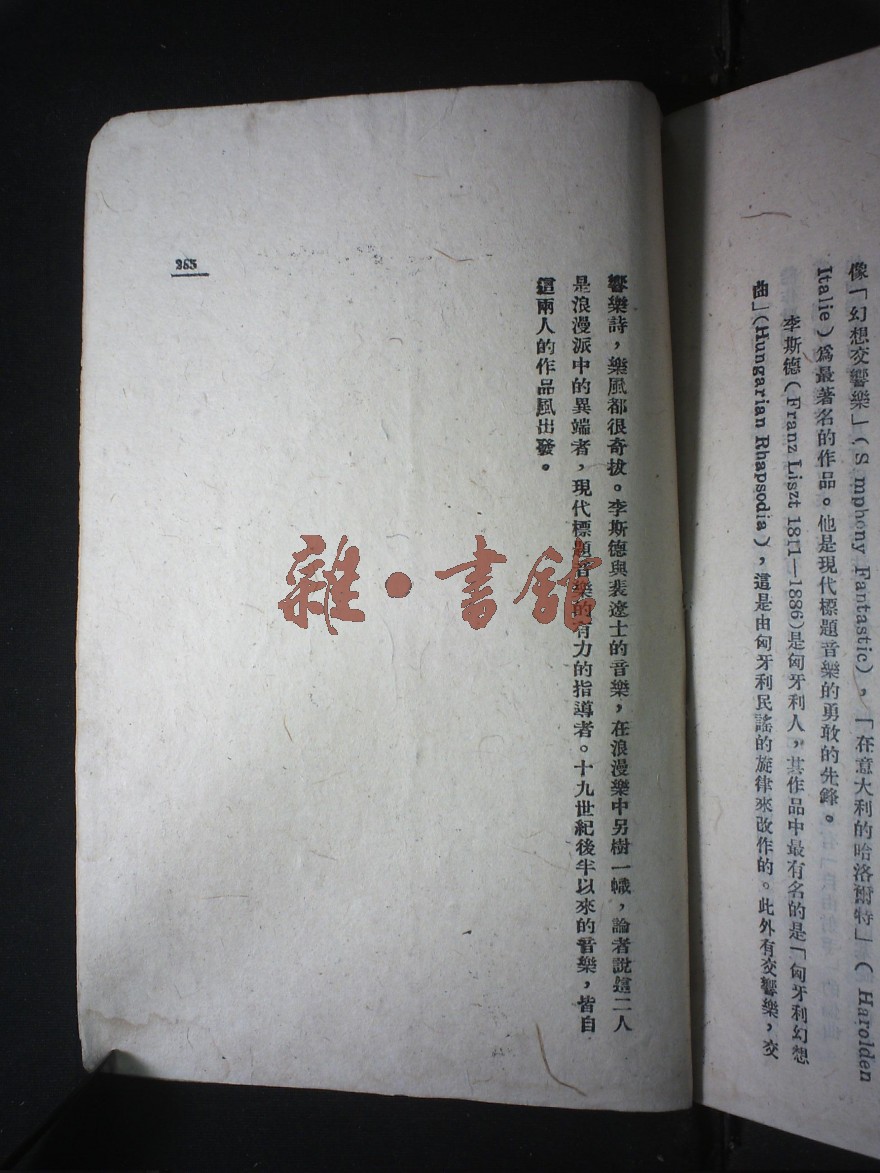 像「幻想交響樂」(S mphony Fantastic),「在意大利的哈洛爾特」( Harolden
Italie)爲最著名的作品。他是現代標題音樂的勇敢的先鋒。
李斯德(Franz Liszt 1811—1886)是匈牙利人,其作品中最有名的是「匈牙利幻想
曲」(Hungarian Rhapsodia),這是由匈牙利民謠的旋律來改作的。此外有交響樂,交
響樂詩,樂風都很奇拔。李斯德與裴遼士的音樂,在浪漫樂中另樹一幟,論者說這二人
是浪漫派中的異端者,現代標題音樂的有力的指導者。十九世紀後半以來的音樂,皆自
這兩人的作品風出發。
265
雜·書館